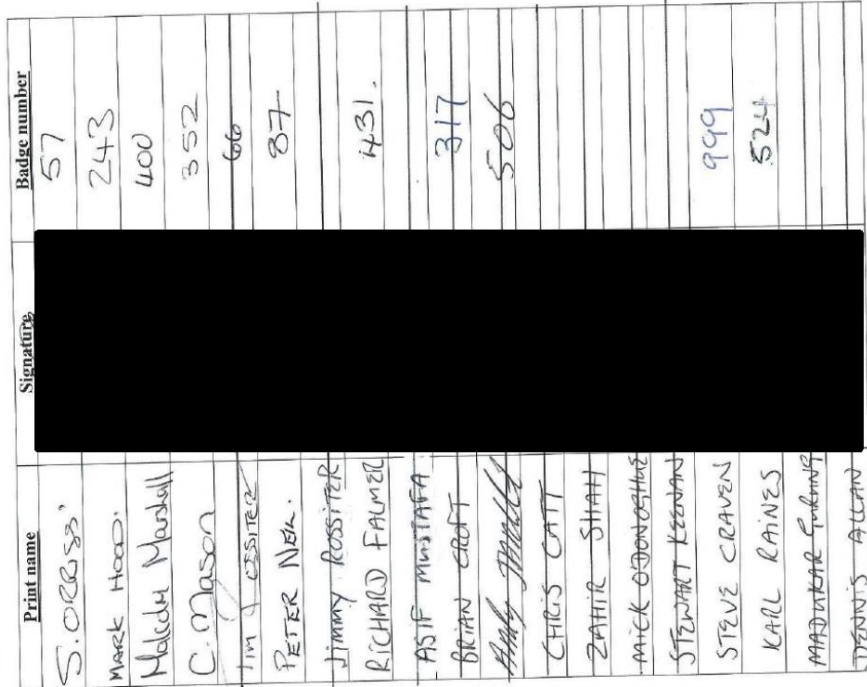 Print name Signature Badge number
S. ORRISS' 57
MARK HOOD. 243
Malcolm Marshall 400
C. Mason 352
Tim ROSSITER 66
PETER NEIL. 87
Jimmy ROSSITER
RICHARD FALMER 431.
ASIF MUSTAFA
BRIAN CROFT 317
Andy 506
CHRIS CATT
ZAHIR SHAH
MICK O'DONOGHUE
STEWART KEENAN
STEVE CRAVEN 999
KARL RAINES 524
MADHUKAR
DENNIS ALLAN